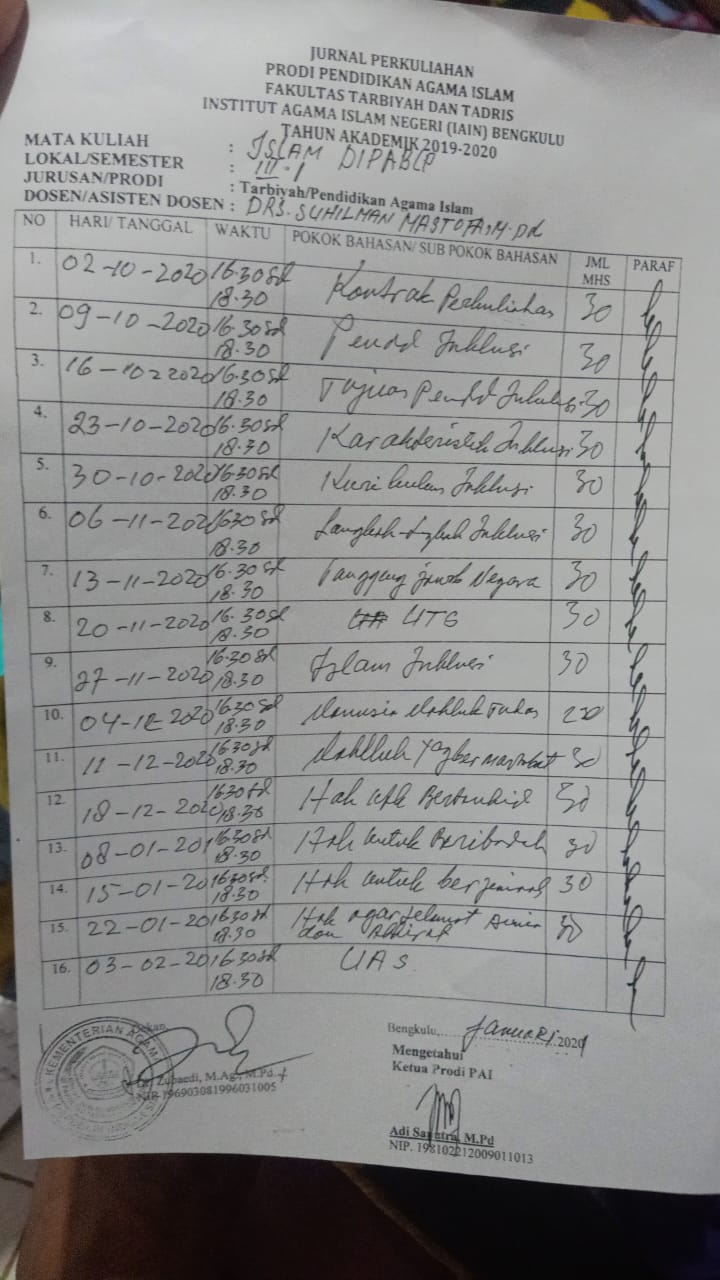 JURNAL PERKULIAHAN
PRODI PENDIDIKAN AGAMA ISLAM
FAKULTAS TARBIYAH DAN TADRIS
INSTITUT AGAMA ISLAM NEGERI (IAIN) BENGKULU
TAHUN AKADEMIK 2019-2020
MATA KULIAH : ISLAM DIPABLP
LOKAL/SEMESTER : III-1
JURUSAN/PRODI : Tarbiyah/Pendidikan Agama Islam
DOSEN/ASISTEN DOSEN : DRS. SUHILMAN MASTOFA, M.Pd
NO HARI/ TANGGAL WAKTU POKOK BAHASAN/ SUB POKOK BAHASAN JML MHS PARAF
1. 02-10-2020 16.30 sd 18.30 Kontrak Perkuliahan 30
2. 09-10-2020 16.30 sd 18.30 Pendd Inklusi 30
3. 16-10-2020 16.30 sd 18.30 Tujuan Pendd Inklusi 30
4. 23-10-2020 16.30 sd 18.30 Karakteristik Inklusi 30
5. 30-10-2020 16.30 sd 18.30 Kurikulum Inklusi 30
6. 06-11-2020 16.30 sd 18.30 Langkah-Lgkah Inklusi 30
7. 13-11-2020 16.30 sd 18.30 Tanggung jawab Negara 30
8. 20-11-2020 16.30 sd 18.30 UTS 30
9. 27-11-2020 16.30 sd 18.30 Islam Inklusi 30
10. 04-12-2020 16.30 sd 18.30 Manusia Makhluk Tuhan
11. 11-12-2020 16.30 sd 18.30 Makhluk yg bermartabat 30
12. 18-12-2020 16.30 sd 18.30 Hak utk 30
13. 08-01-20 16.30 sd 18.30 Hak untuk Beribadah 30
14. 15-01-20 16.30 sd 18.30 Hak untuk 30
15. 22-01-20 16.30 sd 18.30 Hak agar selamat Dunia dan Akhirat 30
16. 03-02-20 16.30 sd 18.30 UAS
Dekan,
KEMENTERIAN AGAMA
Zubaedi, M.Ag., M.Pd
NIP 196903081996031005
Bengkulu, Januari 2021
Mengetahui
Ketua Prodi PAI
Adi Saputra, M.Pd
NIP. 198102212009011013